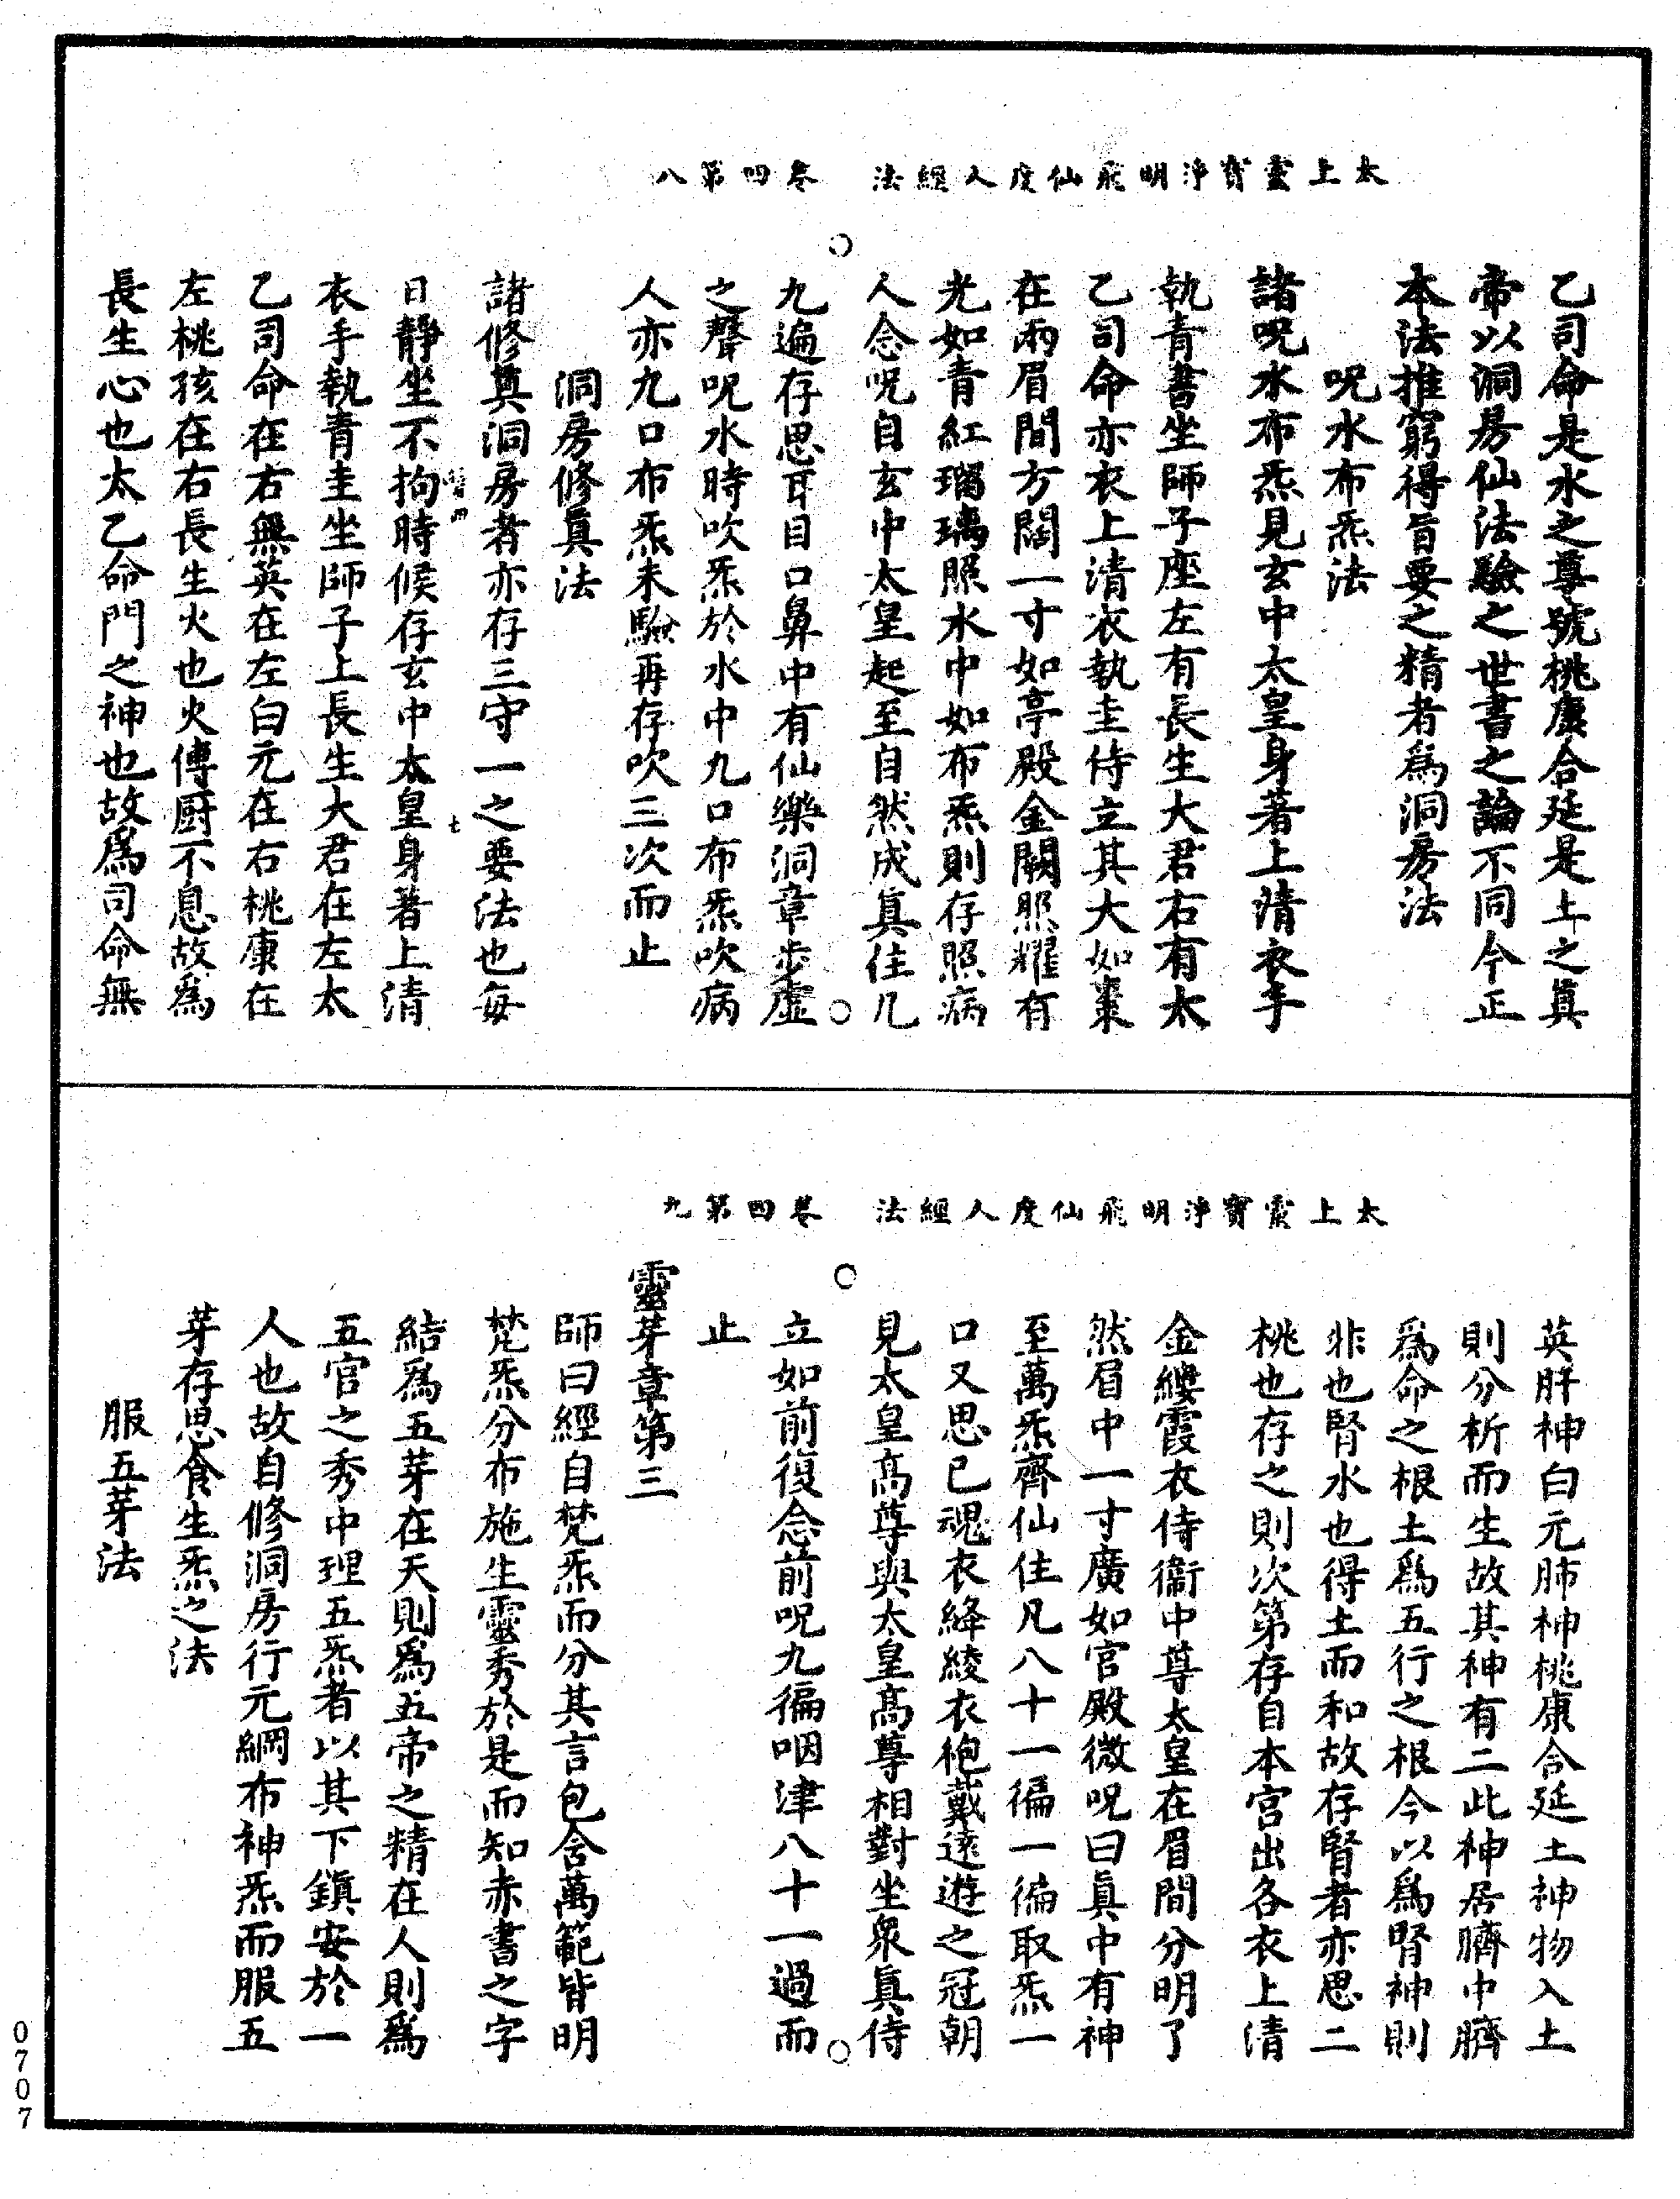 太上靈寶淨明飛仙度人經法　卷四第八
乙司命是水之尊號桃康合延是土之真
帝以洞房仙法驗之世書之論不同今正
本法推窮得旨要之精者為洞房法
呪水布炁法
諸呪水布炁見玄中太皇身著上清衣手
執青書坐師子座左有長生大君右有太
乙司命亦衣上清衣執圭侍立其大如棗
在兩眉間方闊一寸如亭殿金闕照耀有
光如青紅瑠璃照水中如布炁則存照病
人念呪自玄中太皇起至自然成真住凡
九遍存思耳目口鼻中有仙樂洞章步虛
之聲呪水時吹炁於水中九口布炁吹病
人亦九口布炁未驗再存吹三次而止
洞房修真法
諸修真洞房者亦存三守一之要法也每
七
日靜坐不拘時候存玄中太皇身著上清
衣手執青圭坐師子上長生大君在左太
乙司命在右無英在左白元在右桃康在
左桃孩在右長生火也火傳厨不息故為
長生心也太乙命門之神也故為司命無
太上靈寶淨明飛仙度人經法　卷四第九
英肝神白元肺神桃康合延土神物入土
則分析而生故其神有二此神居臍中臍
為命之根土為五行之根今以為腎神則
非也腎水也得土而和故存腎者亦思二
桃也存之則次第存自本宮出各衣上清
金縷霞衣侍衛中尊太皇在眉間分明了
然眉中一寸廣如官殿微呪曰真中有神
至萬炁齊仙住凡八十一徧一徧取炁一
口又思已魂衣絳綾衣袍戴遠遊之冠朝
見太皇高尊與太皇高尊相對坐眾真侍
立如前復念前呪九徧咽津八十一過而
止
靈芽章第三
師曰經自梵炁而分其言包含萬範皆明
梵炁分布施生靈秀於是而知赤書之字
結為五芽在天則為五帝之精在人則為
五官之秀中理五炁者以其下鎮安於一
人也故自修洞房行元綱布神炁而服五
芽存思食生炁之法
服五芽法
0707